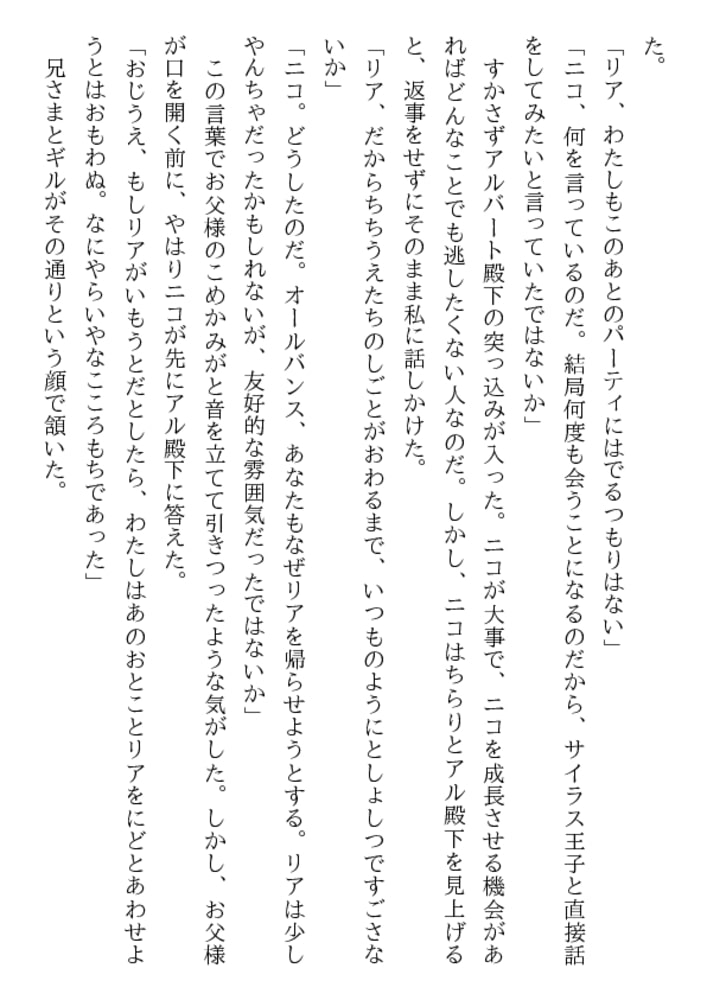 た。
「リア、わたしもこのあとのパーティにはでるつもりはない」
「ニコ、何を言っているのだ。結局何度も会うことになるのだから、サイラス王子と直接話
をしてみたいと言っていたではないか」
　すかさずアルバート殿下の突っ込みが入った。ニコが大事で、ニコを成長させる機会があ
ればどんなことでも逃したくない人なのだ。しかし、ニコはちらりとアル殿下を見上げる
と、返事をせずにそのまま私に話しかけた。
「リア、だからちちうえたちのしごとがおわるまで、いつものようにとしょしつですごさな
いか」
「ニコ。どうしたのだ。オールバンス、あなたもなぜリアを帰らせようとする。リアは少し
やんちゃだったかもしれないが、友好的な雰囲気だったではないか」
　この言葉でお父様のこめかみがと音を立てて引きつったような気がした。しかし、お父様
が口を開く前に、やはりニコが先にアル殿下に答えた。
「おじうえ、もしリアがいもうとだとしたら、わたしはあのおとことリアをにどとあわせよ
うとはおもわぬ。なにやらいやなこころもちであった」
　兄さまとギルがその通りという顔で頷いた。